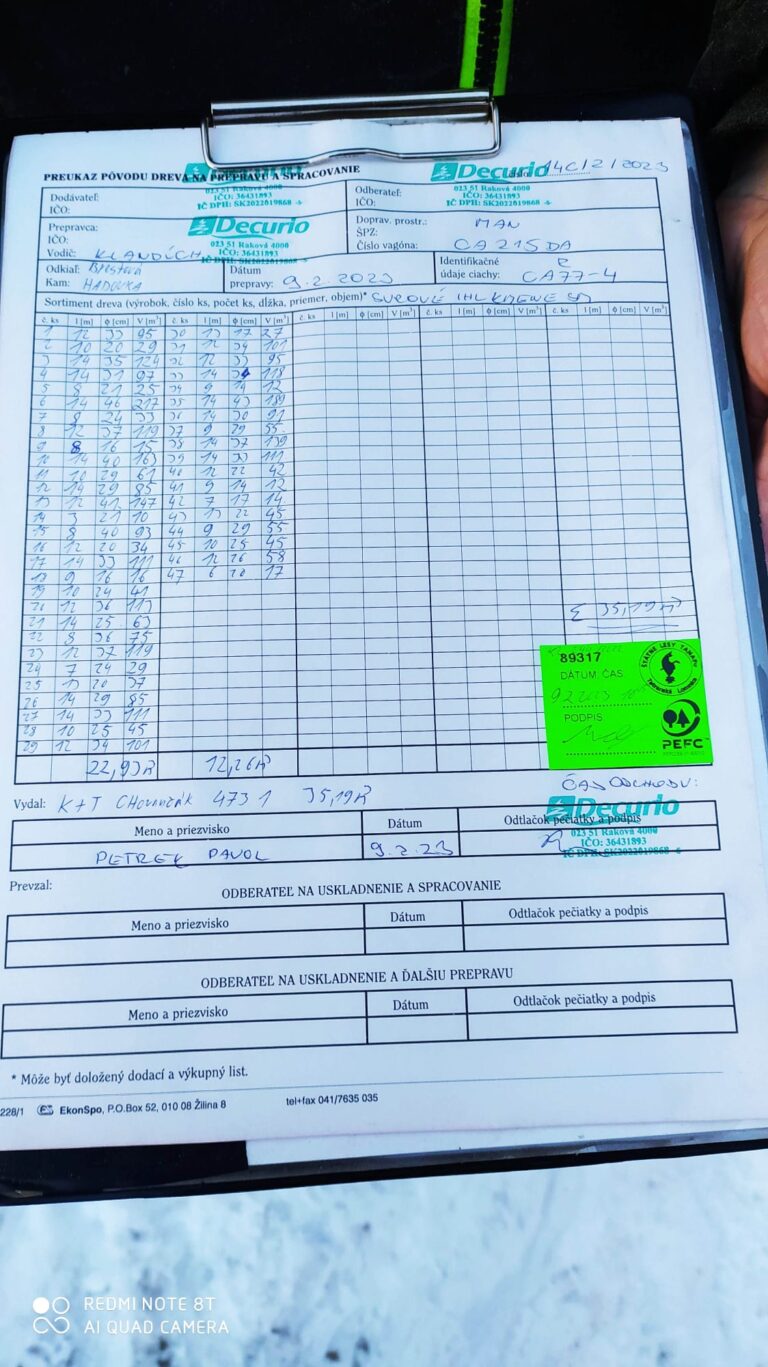 PREUKAZ PÔVODU DREVA NA PREPRAVU A SPRACOVANIE
Decurio
023 51 Raková 4000
IČO: 36431893
IČ DPH: SK2022019868
14C/2/2023
Dodávateľ:
IČO:
Odberateľ:
IČO:
Prepravca:
IČO:
Vodič: KLANDÚCH
Decurio
023 51 Raková 4000
IČO: 36431893
Doprav. prostr.: MAN
ŠPZ:
Číslo vagóna: CA215DA
Odkiaľ:
Kam: HADOVKA
Dátum
prepravy: 9.2.2023
Identifikačné
údaje ciachy: CA77-4
Sortiment dreva (výrobok, číslo ks, počet ks, dĺžka, priemer, objem)* SUROVÉ IHL KMENE
č. ks l [m] ϕ [cm] V [m³] č. ks l [m] ϕ [cm] V [m³] č. ks l [m] ϕ [cm] V [m³] č. ks l [m] ϕ [cm] V [m³] č. ks l [m] ϕ [cm] V [m³]
1 12 33 95 30 13 17 27
2 10 20 29 31 12 34 101
3 14 35 124 32 12 33 95
4 14 31 97 33 14 34 118
5 8 21 25 34 9 14 12
6 14 46 217 35 14 43 189
7 8 24 33 36 14 30 91
8 12 37 119 37 9 29 55
9 8 16 15 38 14 37 139
10 14 40 163 39 14 33 111
11 10 29 61 40 12 22 42
12 14 29 85 41 9 14 12
13 12 41 147 42 7 17 14
14 3 21 10 43 13 22 45
15 8 40 93 44 9 29 55
16 12 20 34 45 10 25 45
17 14 33 111 46 12 26 58
18 9 16 16 47 6 20 17
19 10 24 41
20 12 36 113
21 14 25 63
22 8 36 75
23 12 37 119
24 7 24 29
25 13 20 37
26 14 29 85
27 14 33 111
28 10 25 45
29 12 34 101
Σ 35,19
22,93 12,26
89317
DÁTUM ČAS
PODPIS
ŠTÁTNE LESY TANAPu
Tatranská Lomnica
PEFC
ČAS ODCHODU:
Vydal: K+T CHOVANČÁK 4731 35,19
Meno a priezvisko Dátum Odtlačok pečiatky a podpis
PETREK PAVOL 9.2.23
Decurio
023 51 Raková 4000
IČO: 36431893
IČ DPH: SK2022019868
Prevzal:
ODBERATEĽ NA USKLADNENIE A SPRACOVANIE
Meno a priezvisko Dátum Odtlačok pečiatky a podpis
ODBERATEĽ NA USKLADNENIE A ĎALŠIU PREPRAVU
Meno a priezvisko Dátum Odtlačok pečiatky a podpis
* Môže byť doložený dodací a výkupný list.
228/1 EkonSpo, P.O.Box 52, 010 08 Žilina 8 tel+fax 041/7635 035
REDMI NOTE 8T
AI QUAD CAMERA